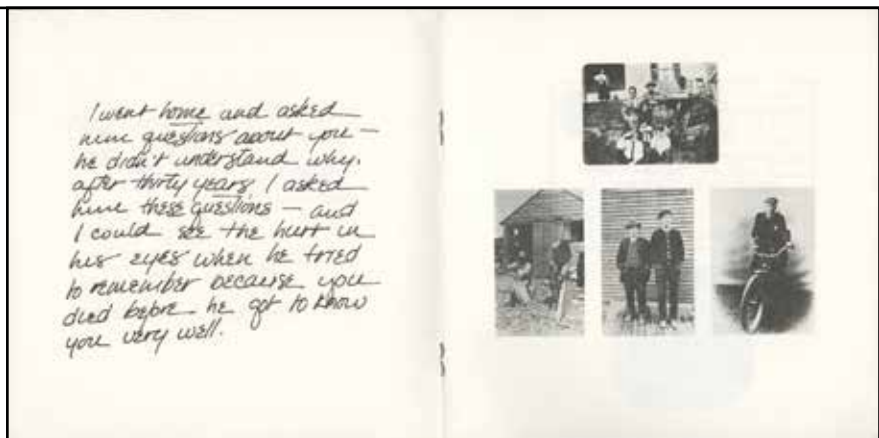 I went home and asked
him questions about you —
he didn't understand why.
after thirty years I asked
him these questions — and
I could see the hurt in
his eyes when he tried
to remember because you
died before he got to know
you very well.